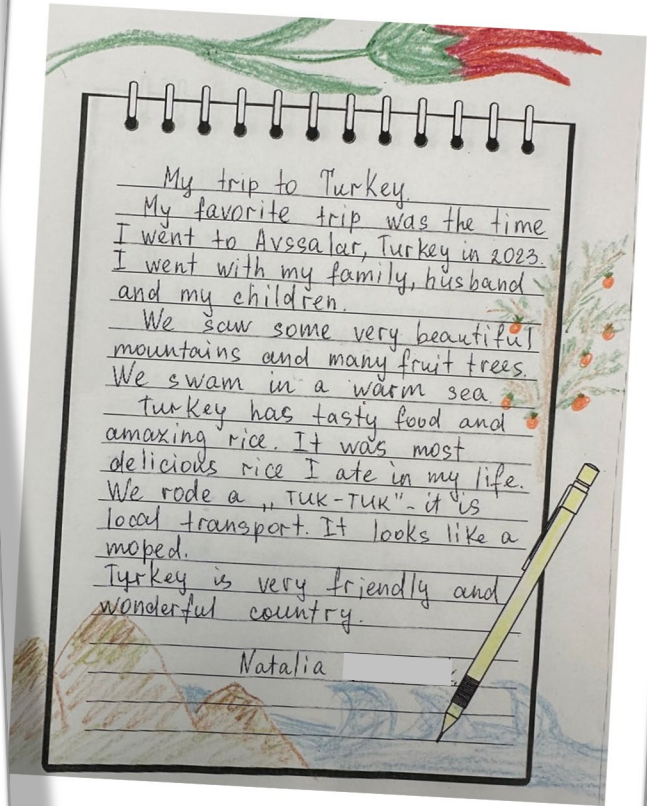 My trip to Turkey.
My favorite trip was the time
I went to Avssalar, Turkey in 2023.
I went with my family, husband
and my children.
We saw some very beautiful
mountains and many fruit trees.
We swam in a warm sea.
Turkey has tasty food and
amazing rice. It was most
delicious rice I ate in my life.
We rode a „TUK-TUK" - it is
local transport. It looks like a
moped.
Tyrkey is very friendly and
wonderful country.
Natalia